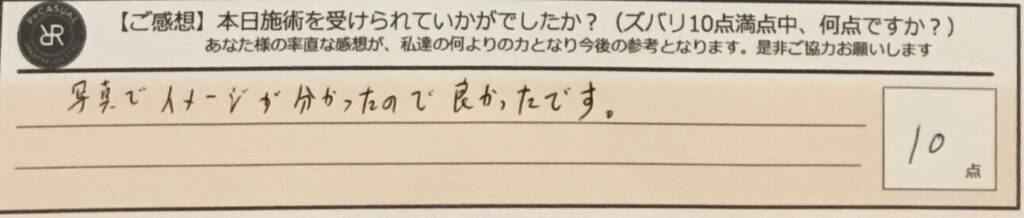 【ご感想】本日施術を受けられていかがでしたか？（ズバリ10点満点中、何点ですか？）
あなた様の率直な感想が、私達の何よりの力となり今後の参考となります。是非ご協力お願いします
写真でイメージが分かったので良かったです。
10
点